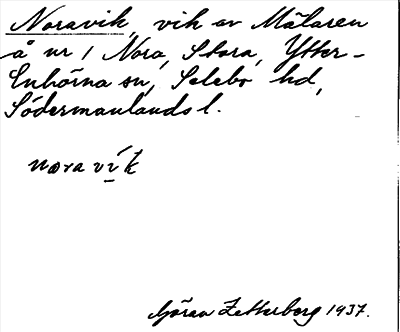 Noravik, vik av Mälaren
å nr 1 Nora, Stora, Ytter-
Enhörna sn, Selebo hd,
Södermanlands l.
nωra vík
Göran Zetterberg 1937.